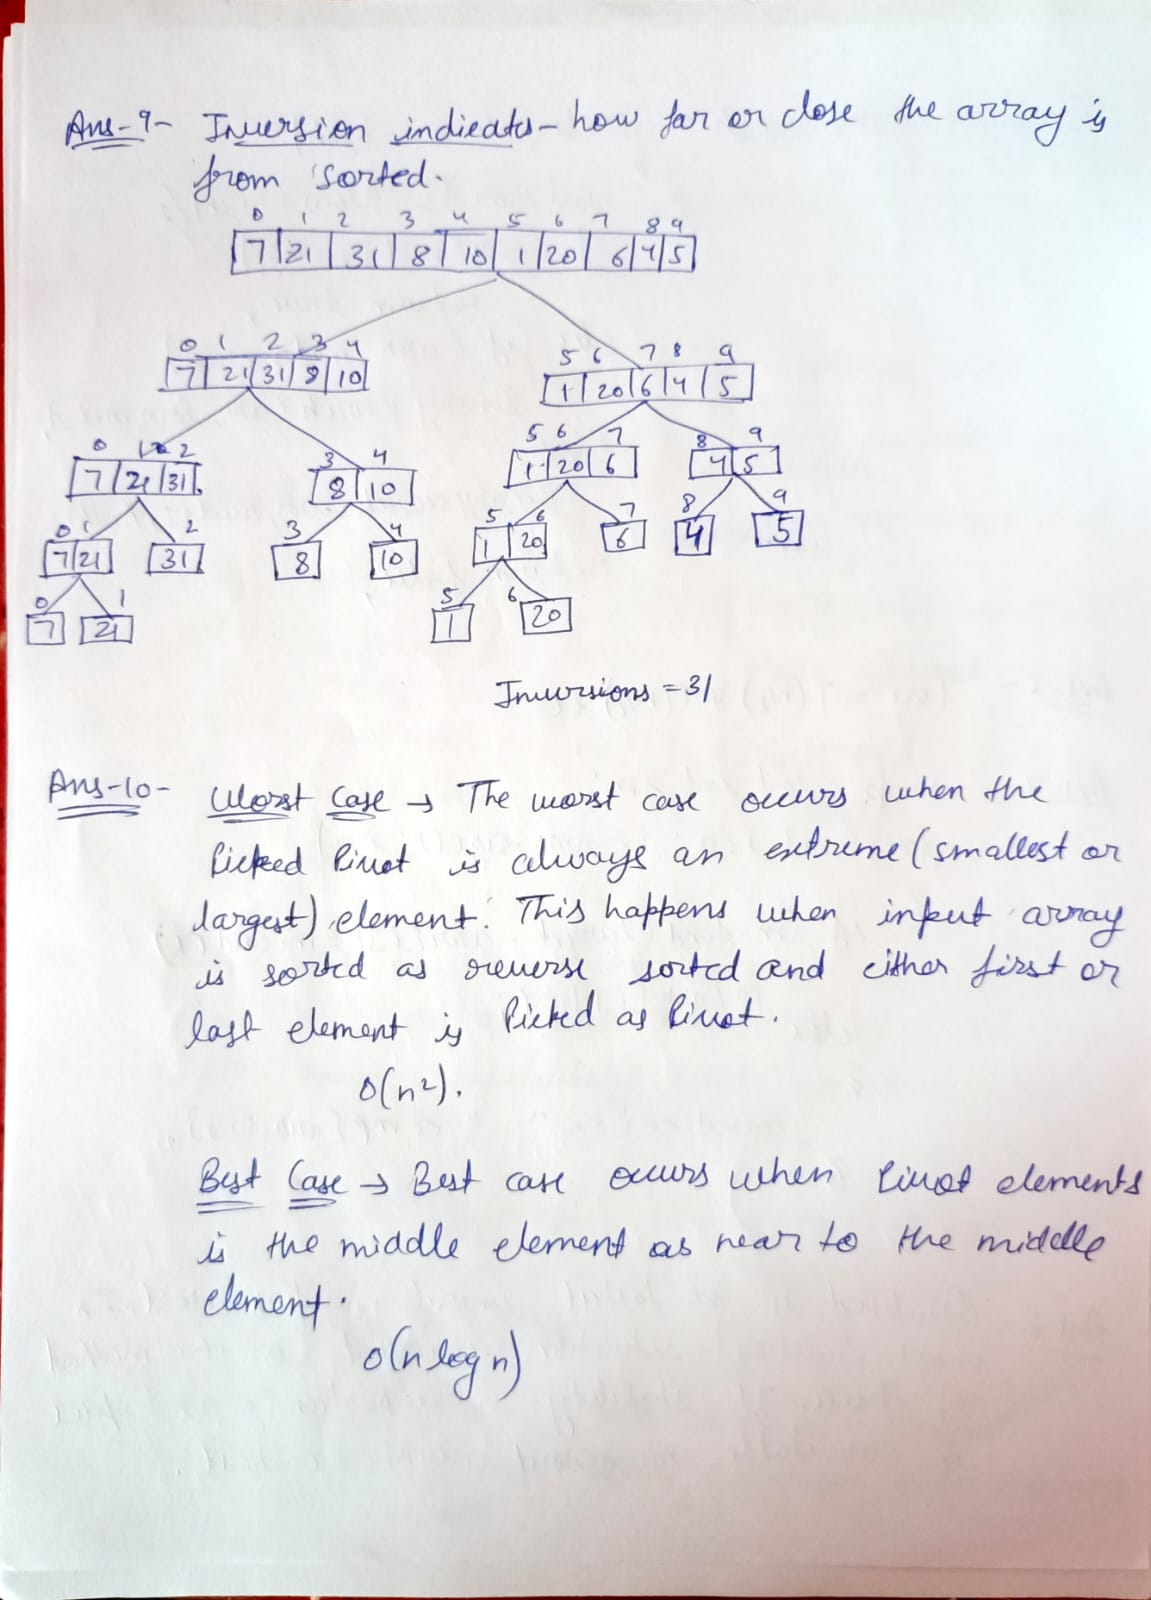 Ans-9- Inversion indicates - how far or close the array is
from sorted.
0 1 2 3 4 5 6 7 8 9
7 21 31 8 10 1 20 6 4 5
0 1 2 3 4 5 6 7 8 9
7 21 31 8 10 1 20 6 4 5
0 1 2 3 4 5 6 7 8 9
7 21 31 8 10 1 20 6 4 5
0 1 2 3 4 5 6 7 8 9
7 21 31 8 10 1 20 6 4 5
0 1 5 6
7 21 1 20
Inversions = 31
Ans-10- Worst Case → The worst case occurs when the
Picked Pivot is always an extreme (smallest or
largest) element. This happens when input array
is sorted as reverse sorted and either first or
last element is Picked as Pivot.
O(n²).
Best Case → Best case occurs when Pivot elements
is the middle element as near to the middle
element.
O(n log n)